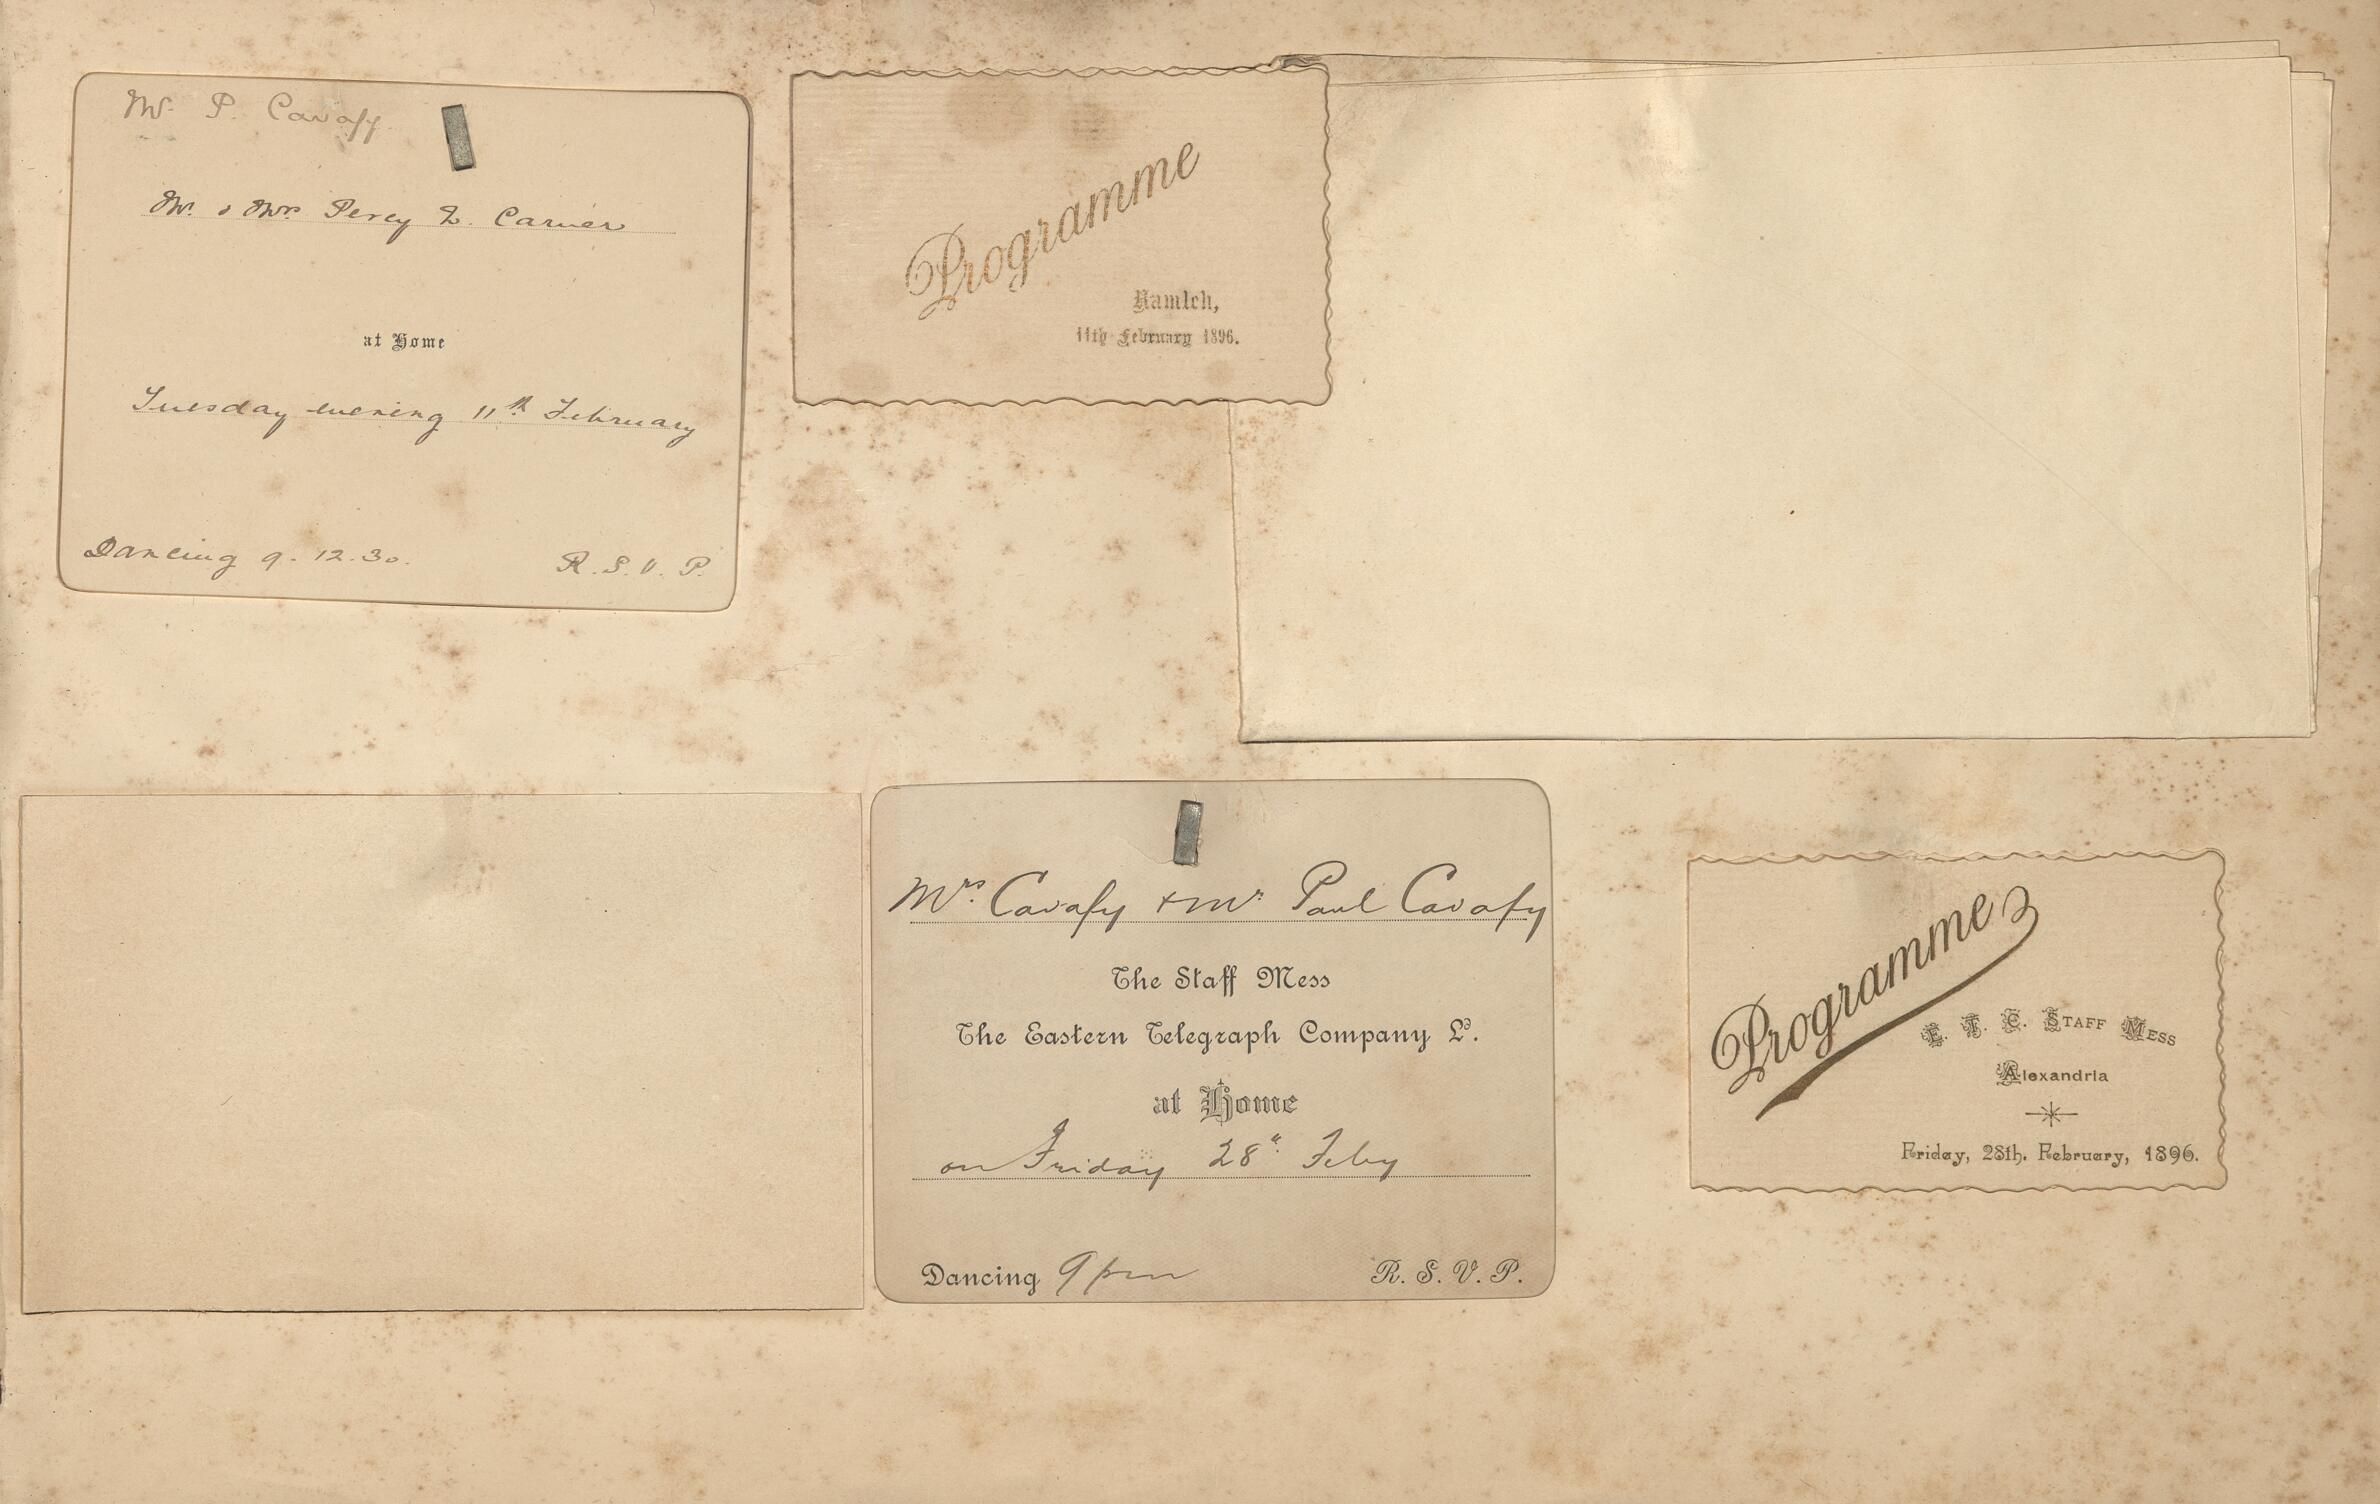 Mr. P. Cavafy
Mr. & Mrs Percy W. Carver
at Home
Tuesday evening 11th February
Dancing 9 - 12.30.
R. S. V. P.
Programme
Ramleh,
11th February 1896.
Mrs. Cavafy + Mr Paul Cavafy
The Staff Mess
The Eastern Telegraph Company Ld.
at Home
on Friday 28" Feby
Dancing 9 pm
R. S. V. P.
Programme
E. T. C. Staff Mess
Alexandria
Friday, 28th. February, 1896.